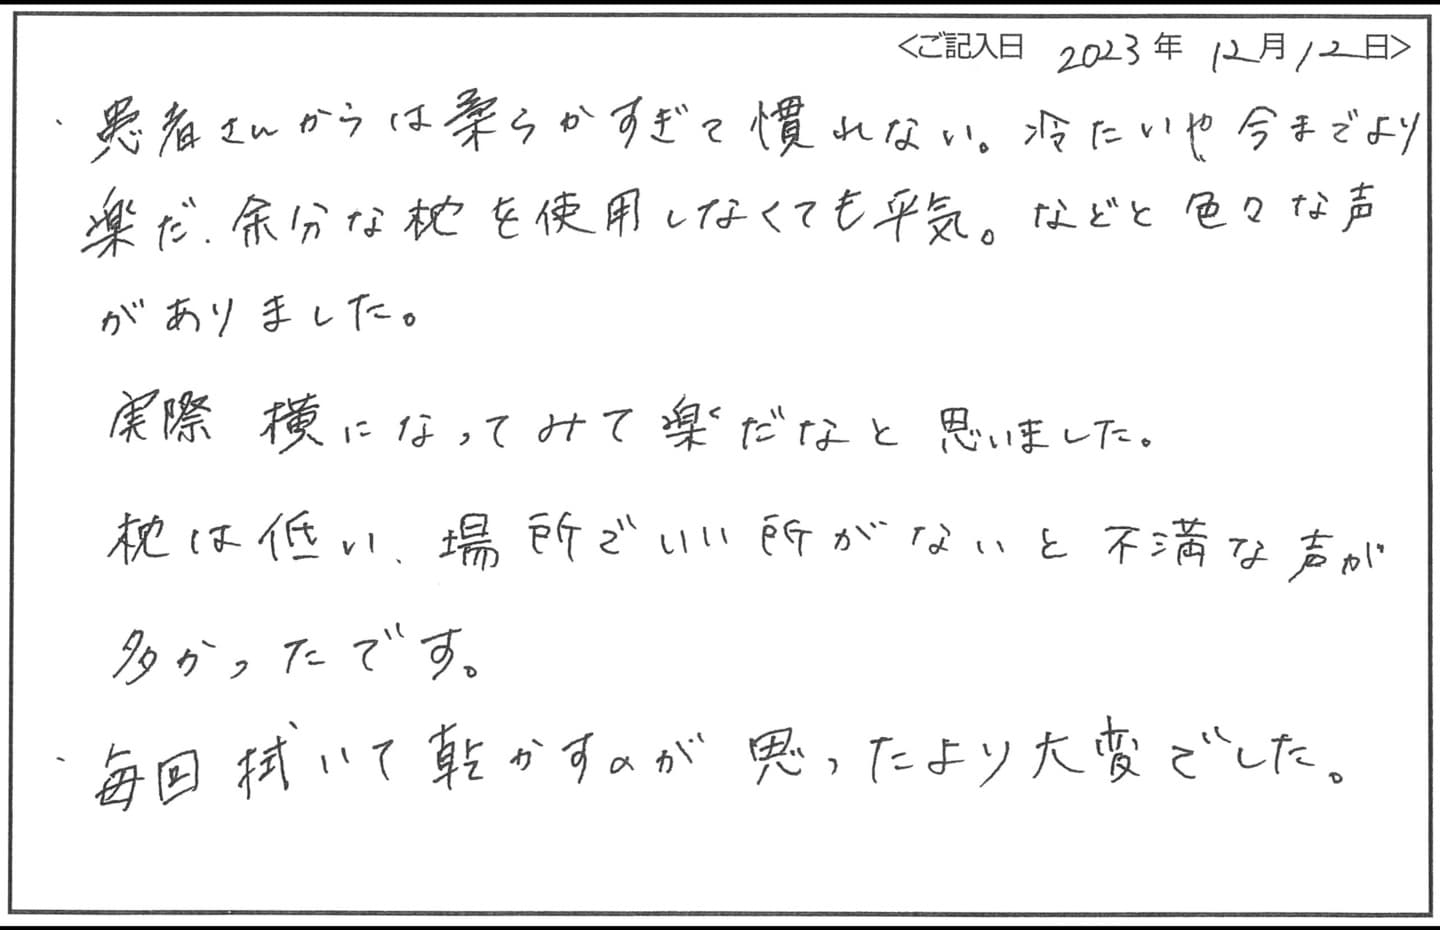 <ご記入日 2023年 12月12日>
・患者さんからは柔らかすぎて慣れない。冷たいや今までより
楽だ、余分な枕を使用しなくても平気。などと色々な声
がありました。
実際 横になってみて楽だなと思いました。
枕は低い、場所でいい所がないと不満な声が
多かったです。
・毎回拭いて乾かすのが思ったより大変でした。